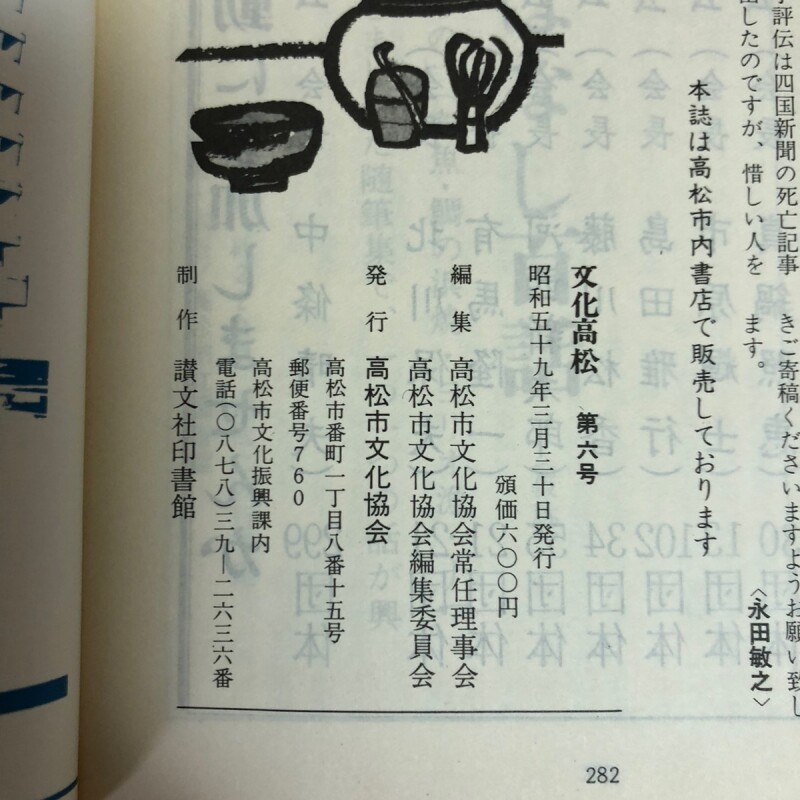 評伝は四国新聞の死亡記事
したのですが、惜しい人を
きご寄稿くださいますようお願い致し
ます。
〈永田敏之〉
本誌は高松市内書店で販売しております
文化高松 第六号
昭和五十九年三月三十日発行
頒価六〇〇円
編集 高松市文化協会常任理事会
高松市文化協会編集委員会
発行 高松市文化協会
高松市番町一丁目八番十五号
郵便番号760
高松市文化振興課内
電話(〇八七八)三九―二六三六番
制作 讃文社印書館
282